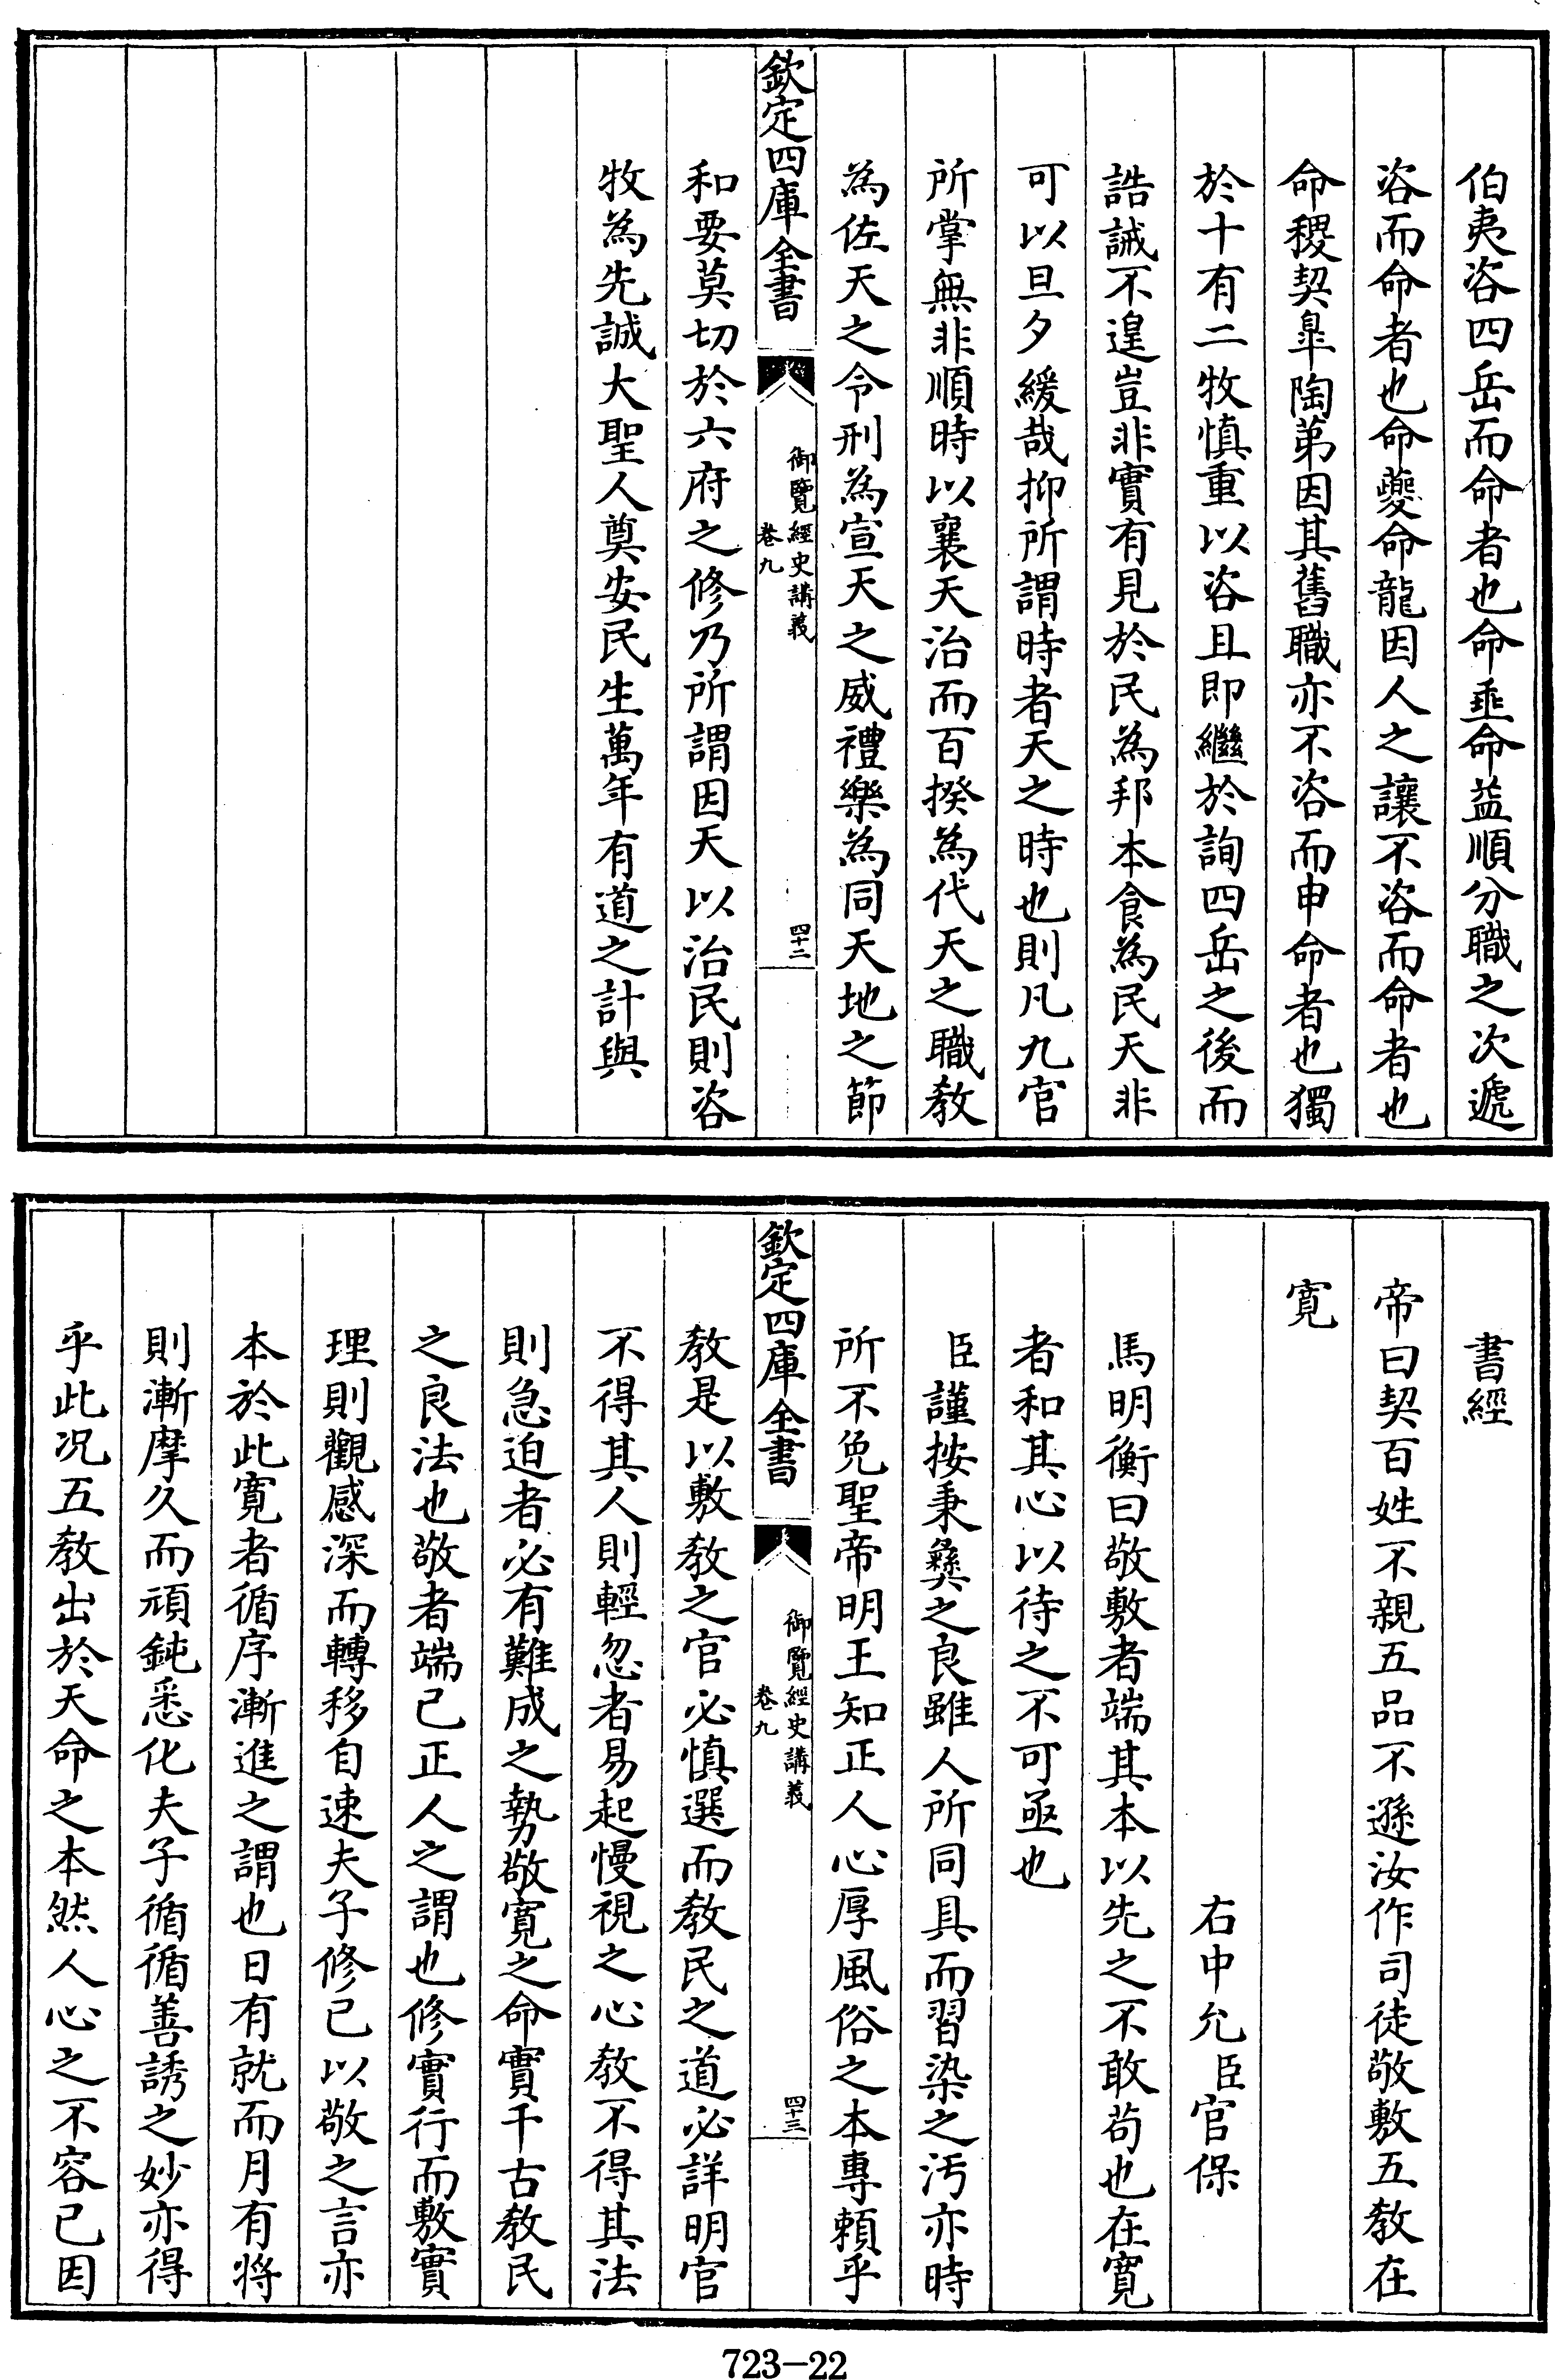 伯夷咨四岳而命者也命垂命益順分職之次遞
咨而命者也命夔命龍因人之讓不咨而命者也
命稷契臯陶第因其舊職亦不咨而申命者也獨
於十有二牧慎重以咨且即繼於詢四岳之後而
誥誡不遑豈非實有見於民為邦本食為民天非
可以旦夕緩哉抑所謂時者天之時也則凡九官
所掌無非順時以襄天治而百揆為代天之職教
為佐天之令刑為宣天之威禮樂為同天地之節
欽定四庫全書
御覽經史講義
卷九
四十二
和要莫切於六府之修乃所謂因天以治民則咨
牧為先誠大聖人奠安民生萬年有道之計與
書經
帝曰契百姓不親五品不遜汝作司徒敬敷五教在
寛
右中允臣官保
馬明衡曰敬敷者端其本以先之不敢苟也在寛
者和其心以待之不可亟也
臣謹按秉彝之良雖人所同具而習染之汚亦時
所不免聖帝明王知正人心厚風俗之本專頼乎
欽定四庫全書
御覽經史講義
卷九
四十三
教是以敷教之官必慎選而教民之道必詳明官
不得其人則輕忽者易起慢視之心教不得其法
則急迫者必有難成之勢敬寛之命實千古教民
之良法也敬者端己正人之謂也修實行而敷實
理則觀感深而轉移自速夫子修己以敬之言亦
本於此寛者循序漸進之謂也日有就而月有將
則漸摩久而頑鈍悉化夫子循循善誘之妙亦得
乎此况五教出於天命之本然人心之不容已因
723-22